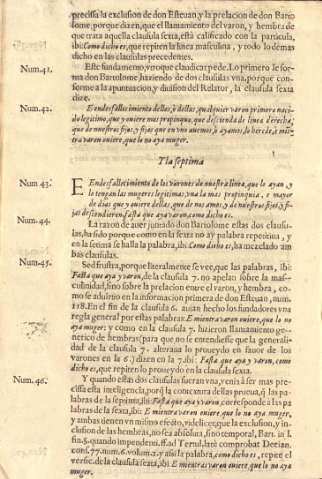 precissa la exclusion de don Esteuan, y la prelacion de don Barto
lome, porque dizen, que el llamamiento del varon, y hembra de
que trata aquella clausula sexta, està calificado con la particula,
ibi: Como dicho es, que repiten la linea masculina, y todo lo demàs
dicho en las clausulas precedentes.
Num. 41. Este fundamento, veo que claudica, pede. Lo primero se for-
ma don Bartolome, haziendo de dos clausulas vna, porque con-
forme a la apuntuacion, y diuision del Relator, la clausula sexta
dize.
Num. 42. E en desfallecimiento dellos, ò dellas, qualquier varon primero naci-
do legitimo, que y ouiere mas propinquo, que descienda de linea derecha,
que de nuestros fijos, y fijas que en vno auemos, ò ayamos, lo herede, è mien-
tra varon ouiere, que lo no aya muger.
Y la septima
Num. 43. E En desfallecimiento de los varones de nuestra linea, que lo ayan, y
lo tengan las mugeres legitimas, vna la mas propinqua, e mayor
de dias que y ouiere dellas, que de nos amos, y de nuestros fijos, y fi-
jas descendieren, fasta que aya varon, como dicho es.
Num. 44. La razon de auer juntado don Bartolome estas dos clausu-
las, ha sido porque como en la sexta no ay palabra repetitiua, y
en la setima se halla la palabra, ibi: Como dicho es, ha mezclado am
bas clausulas.
Num. 45. Sed frustra, porque literalmente se vee, que las palabras, ibi:
Fasta que aya varon, de la clausula 7. no apelan sobre la mas-
culinidad, sino sobre la prelacion entre el varon, y hembra, co-
mo se aduirtio en la informacion primera de don Esteuan, num.
118. En el fin de la clausula 6. auian hecho los fundadores vna
regla general por estas palabras: E mientra varon ouiere, que lo no
aya muger: y como en la clausula 7. hizieron llamamiento ge-
nerico de hembras (para que no se entendiesse que la generali-
dad de la clausula 7. alteraua lo proueydo en fauor de los
varones en la 6.) dizen en la 7. ibi: Fasta que aya varon, como
dicho es, que repiten lo proueydo en la clausula sexta.
Num. 46. Y quando estas dos clausulas fueran vna, venia à ser mas pre-
cissa esta inteligencia, porq̃ la contextura dellas prueua, q̃ las pa-
labras de la septima, ibi: Fasta que aya varon, corresponde a las pa
labras de la sexta, ibi: E mientra varon ouiere, que lo no aya muger,
y ambas tienen vn mismo efecto, videlicet, que la exclusion, y in-
clusion de las hembras, no sea absoluta, sino temporal, Bart. in l.
cons. 77. num. 6. volum. 2. y assi la palabra, como dicho es, repite el
versic. de la clausula sexta, ibi: E mientras varon ouiere, que lo no
aya muger.